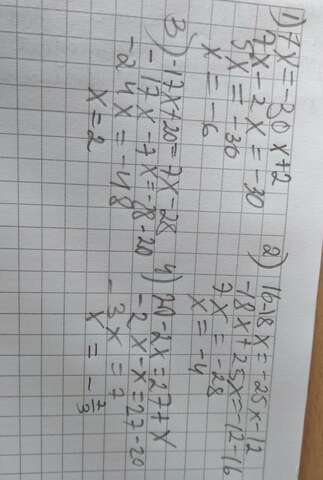 1) 7x = -30x+2
7x - 2x = -30
5x = -30
x = -6
2) 16-18x = -25x-12
-18x+25x = -12-16
7x = -28
x = -4
3) -17x+20 = 7x-28
-17x-7x = -28-20
-24x = -48
x = 2
4) 20-2x = 27+x
-2x-x = 27-20
-3x = 7
x = -7/3